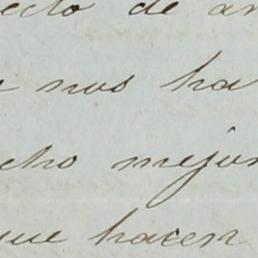 ecto de an
a nos ha
cho mejor
que hacen